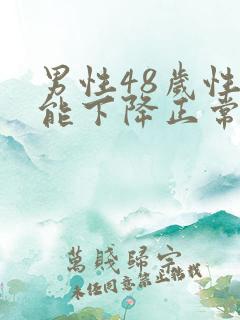 男性48歲性
能下降正常
萬賤歸宇
未经同意禁止转载